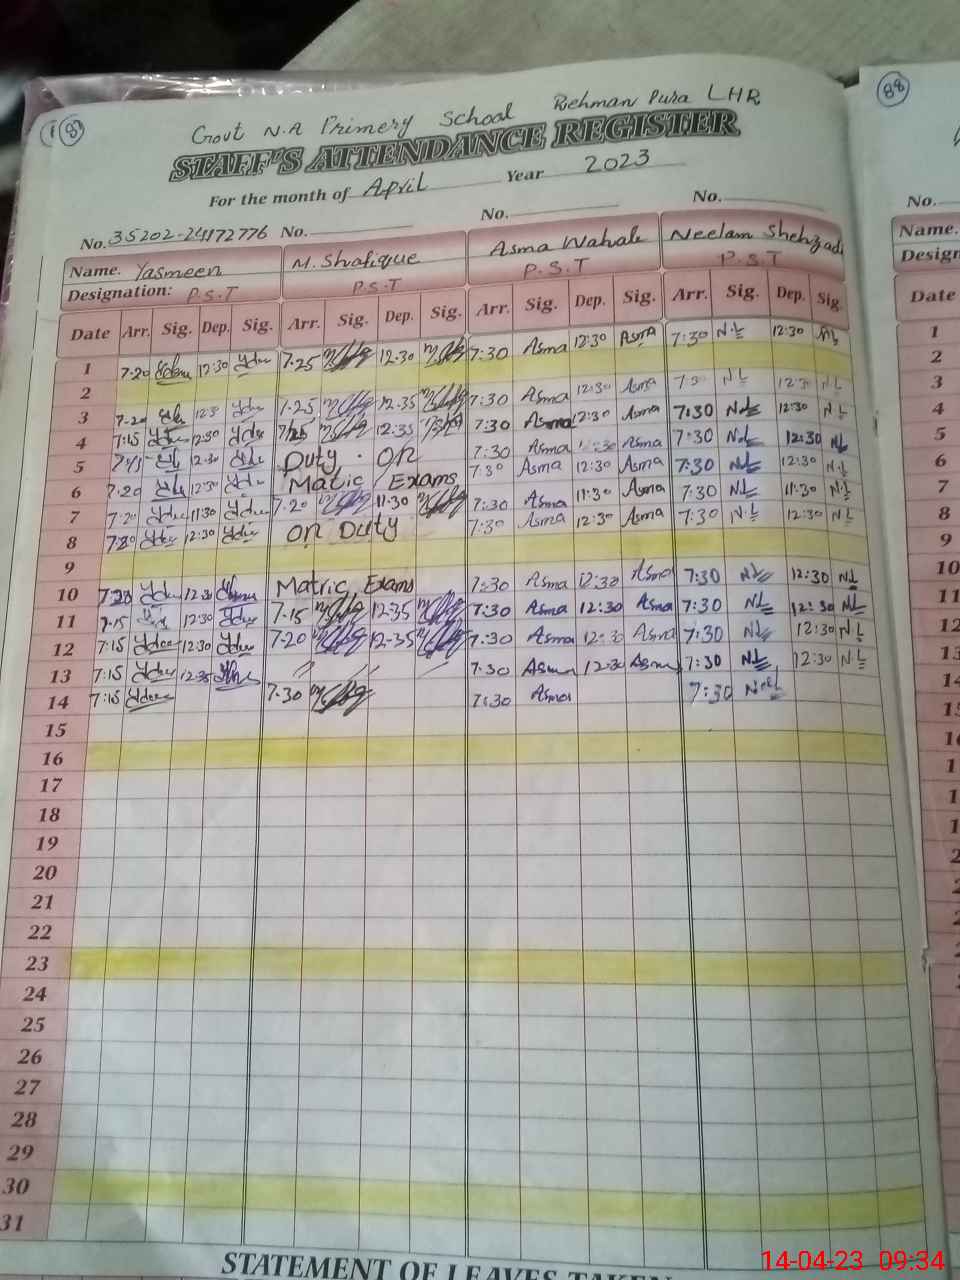 87
88
Govt N.A Primery School Rehman Pura LHR
STAFF'S ATTENDANCE REGISTER
For the month of April Year 2023
No. 35202- No. No. No. No.
Name. Yasmeen M. Shafique Asma Wahab Neelam Shehzadi Name.
Designation: P.S.T P.S.T P.S.T P.S.T Design
Date Arr. Sig. Dep. Sig. Arr. Sig. Dep. Sig. Arr. Sig. Dep. Sig. Arr. Sig. Dep. Sig. Date
1 7:20 12:30 7.25 12.30 7:30 Asma 12:30 Asma 7:30 N.L 12:30 NL 1
2 2
3 7:20 12:30 12.35 7:30 Asma 12:30 Asma 7:30 NL 12:30 NL 3
4 7:15 12:30 7.25 12:35 7:30 Asma 12:30 Asma 7:30 NL 12:30 NL 4
5 12:30 Duty . On 7:30 Asma 12:30 Asma 7:30 NL 12:30 NL 5
6 7:20 12:30 Matic Exams 7:30 Asma 12:30 Asma 7:30 NL 12:30 NL 6
7 7:20 11:30 7.20 11.30 7:30 Asma 11:30 Asma 7:30 NL 11:30 NL 7
8 7:20 12:30 on Duty 7:30 Asma 12:30 Asma 7:30 N.L 12:30 NL 8
9 9
10 7:20 12:30 Matric Exams 7:30 Asma 12:30 Asma 7:30 NL 12:30 NL 10
11 7:15 12:30 7.15 12.35 7:30 Asma 12:30 Asma 7:30 NL 12:30 NL 11
12 7:15 12:30 7.20 12.35 7:30 Asma 12:30 Asma 7:30 NL 12:30 NL 12
13 7:15 12:35 // // // 7:30 Asma 12:30 Asma 7:30 NL 12:30 NL 13
14 7:15 7.30 7:30 Asma 7:30 14
15
16
17
18
19
20
21
22
23
24
25
26
27
28
29
30
31
STATEMENT OF LEAVES TAKEN
14-04-23 09:34